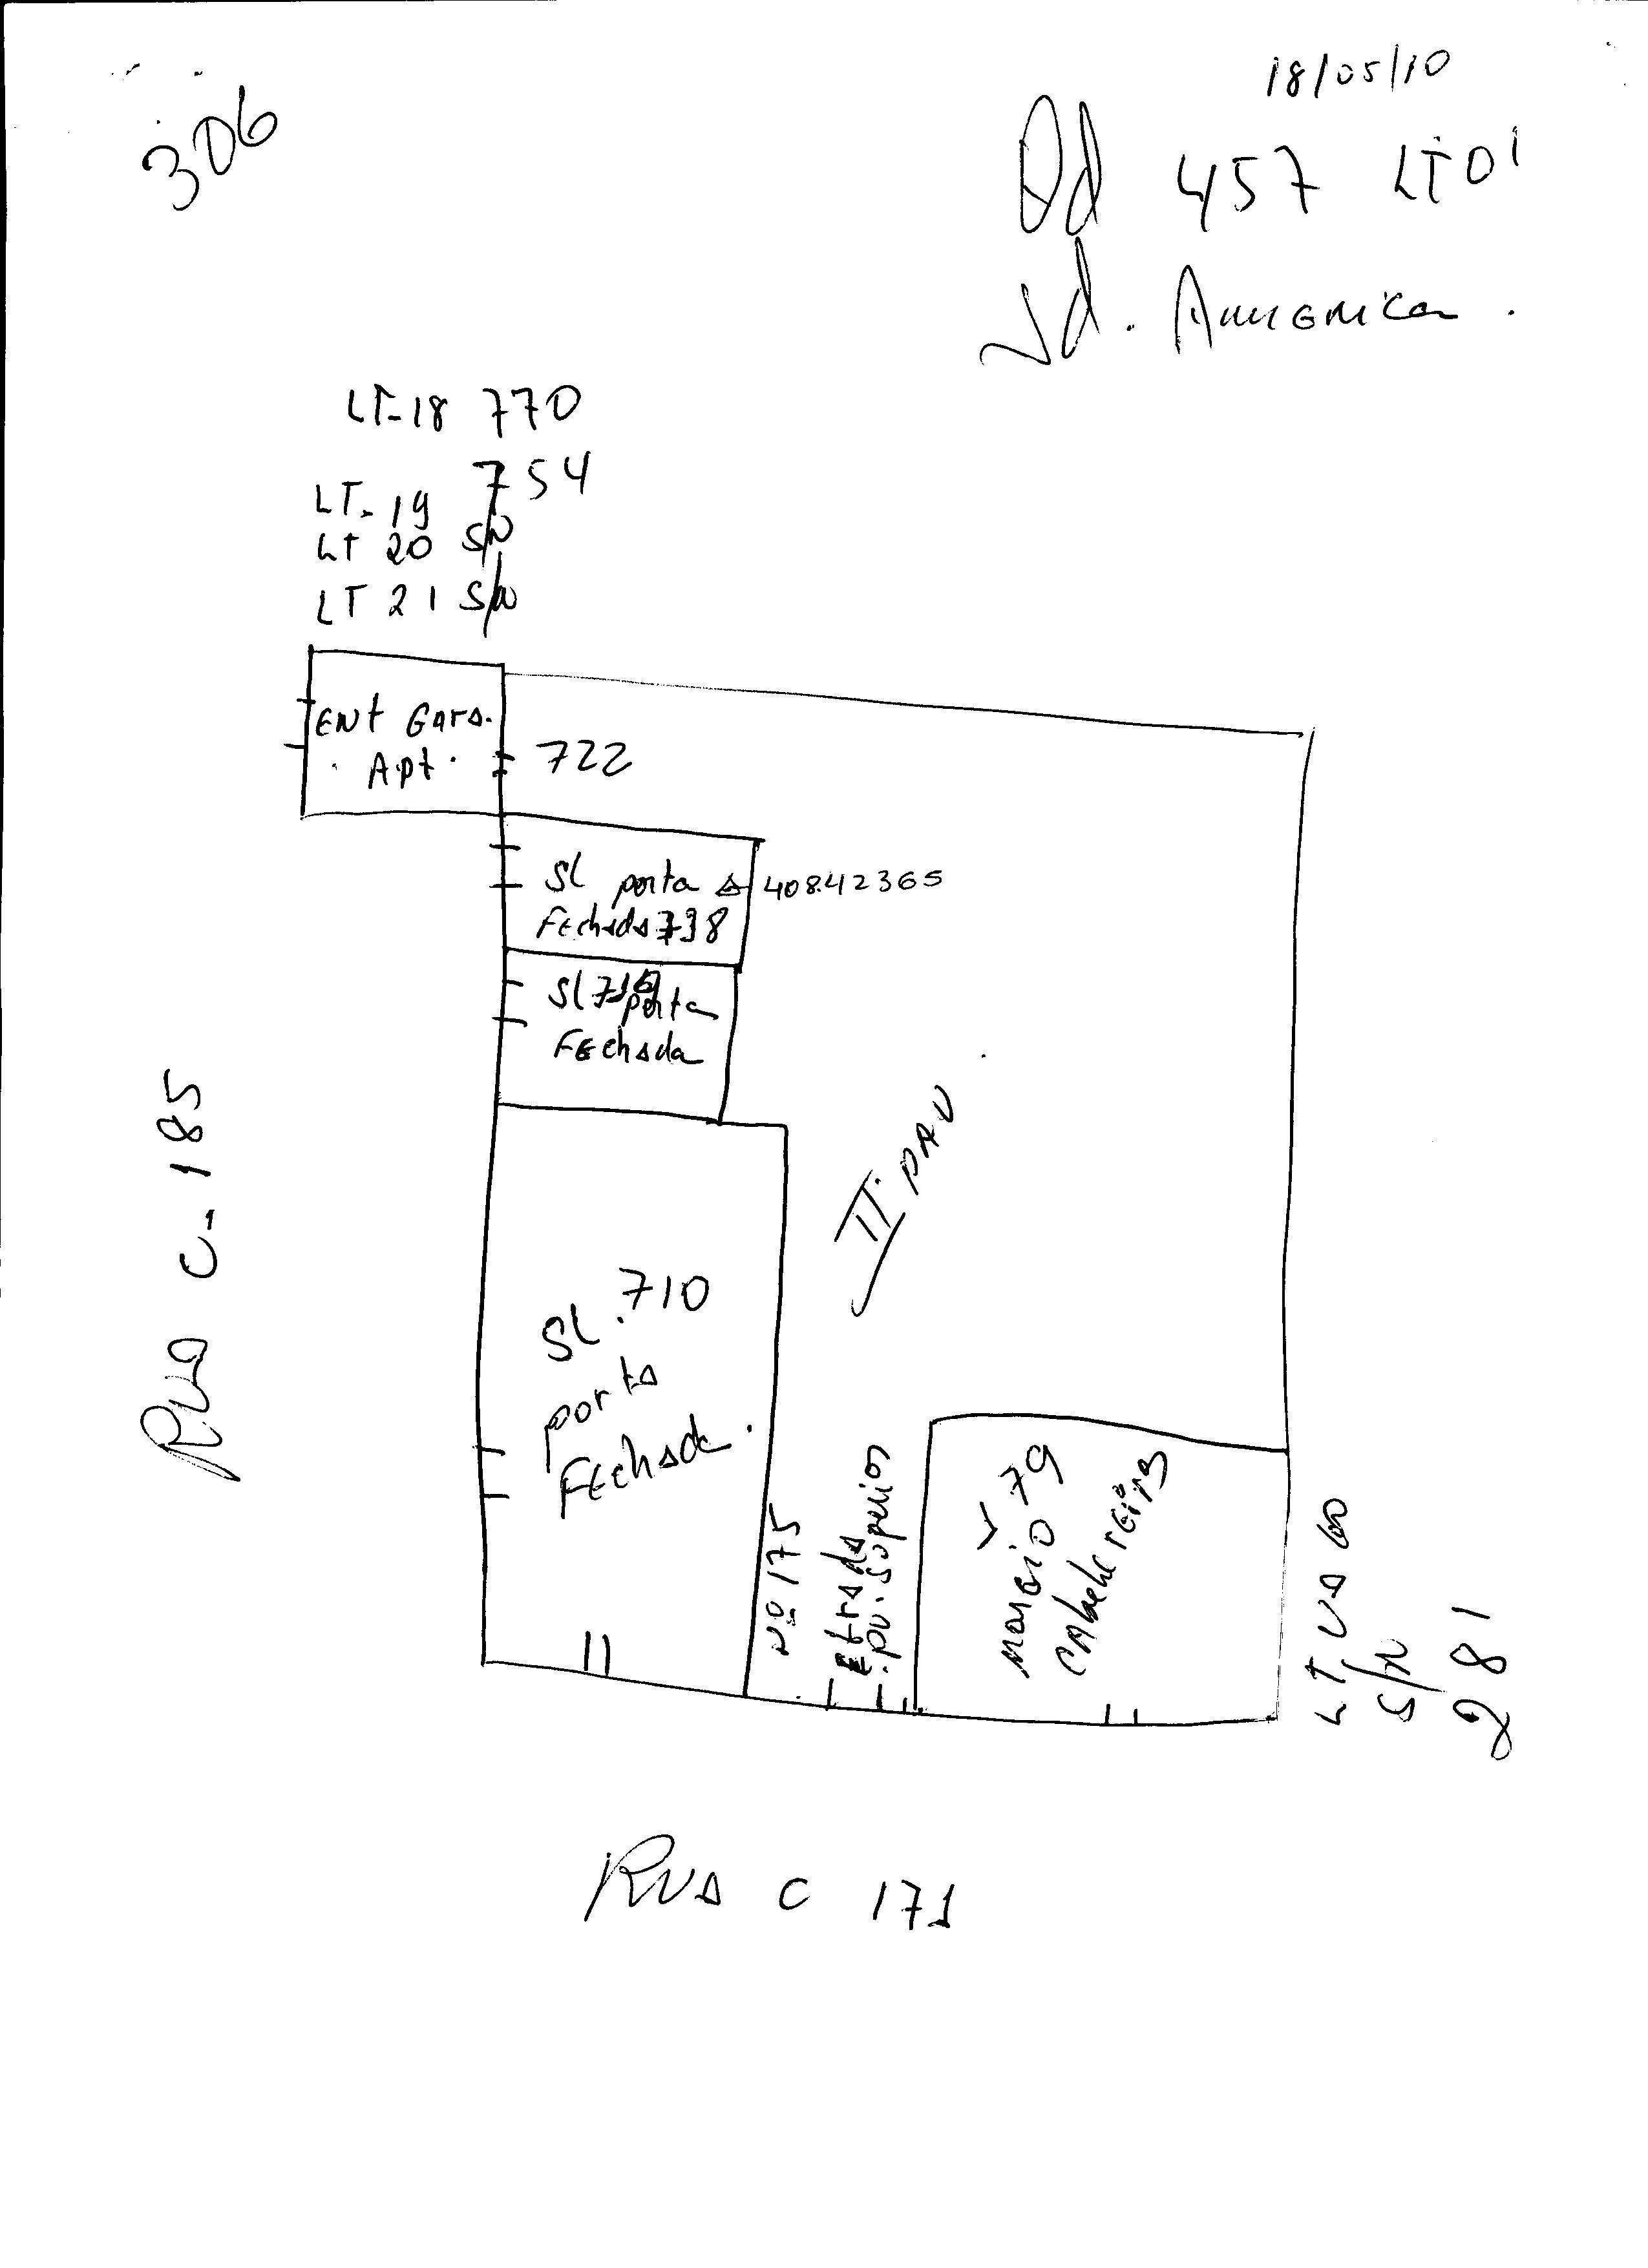 18/05/10
306
Qd 457 LT01
Jd. America.
LT-18 770
LT-19 754
LT 20 S/N
LT 21 S/N
ENt GarA.
Apt.
722
SL porta
FEchada 738
40842365
SL 716 porta
FEchada
Rua C-185
II PAV
SL. 710
porta
FEchada.
Nº 175
Etrada
pv. Superior
Marcio 79
CAbeleireira
LT VAGO
S/N
281
RUA C 171